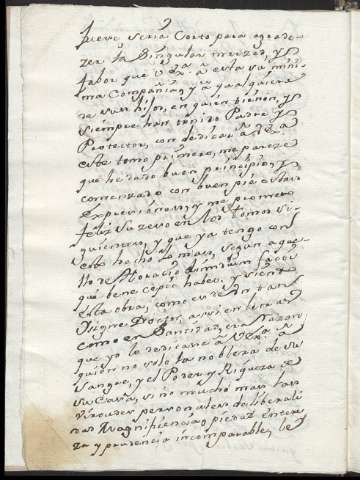 breve seria corto para agrade-
zer la singular merzed, y fa-
bor que V. Exª. a esta su míni-
ma Compañia, y a qualquiera
de sus hijos, en quien tienen, y
siempre han tenido Padre, y
Protector, con dedicar a V. Exª
este tomo primero, me pareze
que he dado buen principio, y
comenzado con buen pie esta
ympression, y me prometo
feliz suzeso en los tomos si-
guientes, y que ya tengo con
esto hecho lo mas, segun aque-
llo de Horacio, dimidium facti
qui bene cepit habet. y siendo
esta obra, como es de un tan
insigne Doctor, assi en letras
como en Santidad, era razon
que yo la dedicara a V. Exª. a
quien no solo la nobleza de su
sangre, y el Poder y Riqueza de
su Casa, si no mucho mas las
virtudes personales de liberali-
dad Magnificencia, piedad, entere-
za y prudencia incomparable, le